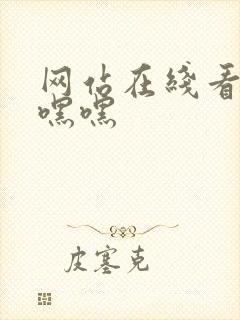 网站在线看
嘿嘿
皮塞克